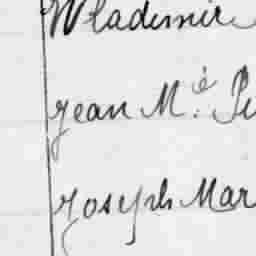 Wladimir
Jean M.é Pi
Joseph Mar